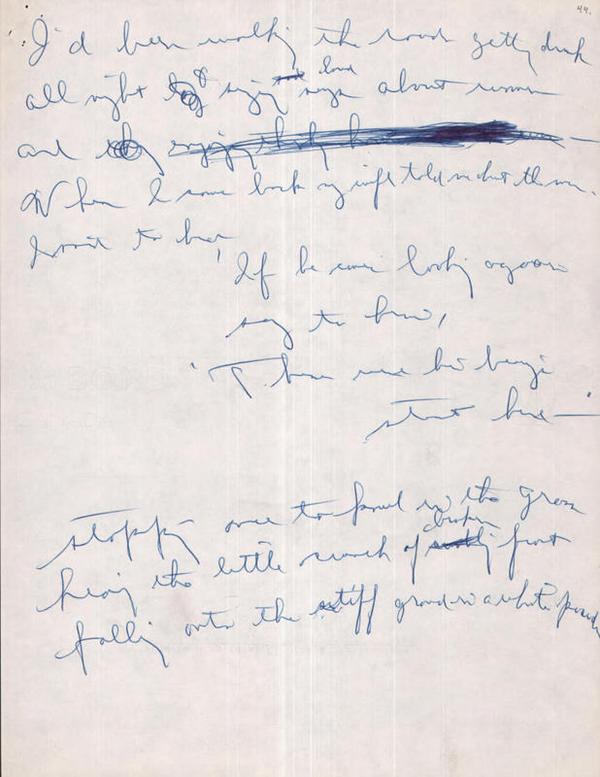 49.
I'd been walking the roads getting drunk
all night singing loud songs about women
and
When I came back my wife told me about the man.
I said to her
'If he comes looking again
say to him,
'There
start here —
stopping once to kneel in the grass
hearing the little scrunch of broken frost
falling onto the stiff ground in a white powder